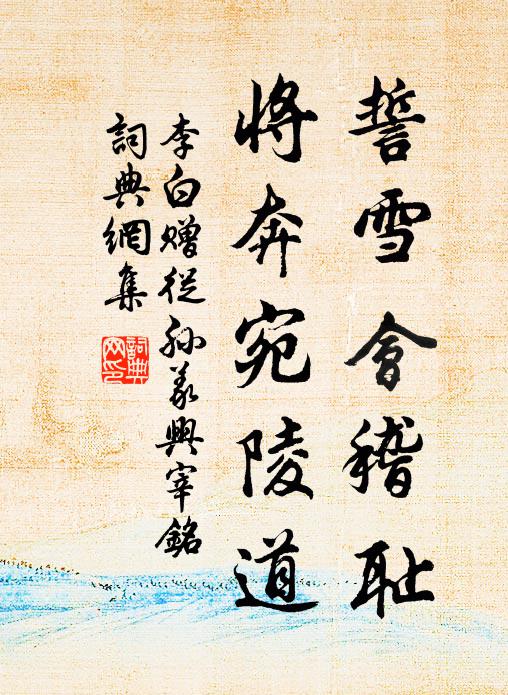 誓雪會稽耻
將奔宛陵道
李白贈從孫義興宰銘
詞典網集
詞典
網印